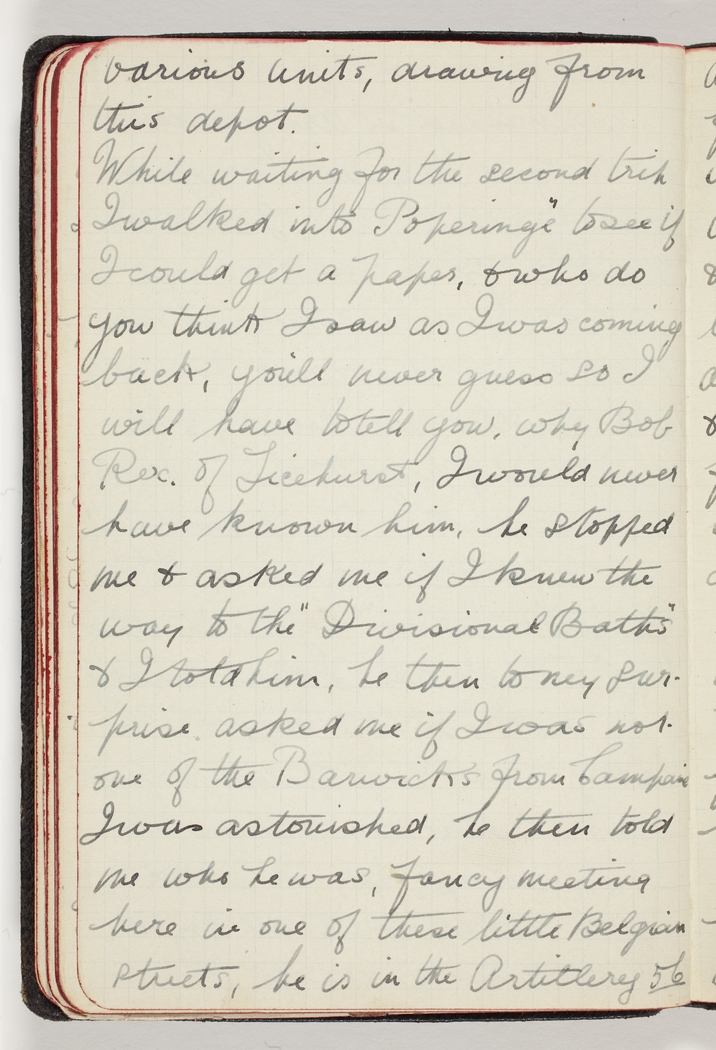 various units, drawing from
this depot.
While waiting for the second trip
I walked into "Poperinge" to see if
I could get a paper, & who do
you think I saw as I was coming
back, you'll never guess so I
will have to tell you, why Bob
Rex. of Ticehurst, I would never
have known him, he stopped
me & asked me if I knew the
way to the "Divisional Baths"
& I told him, he then to my sur-
prise asked me if I was not
one of the Barwicks from Campania
I was astonished, he then told
me who he was, fancy meeting
here in one of these little Belgian
streets, he is in the Artillery 56